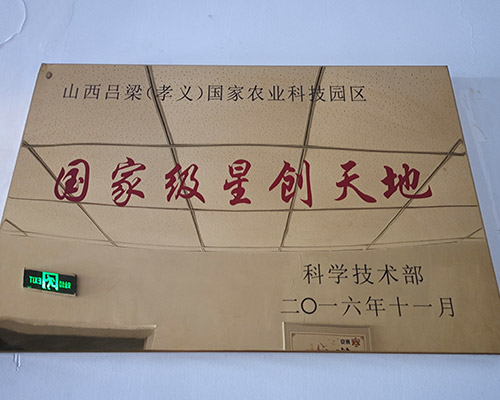 山西吕梁(孝义)国家农业科技园区
国家级星创天地
科学技术部
二〇一六年十一月
EXIT